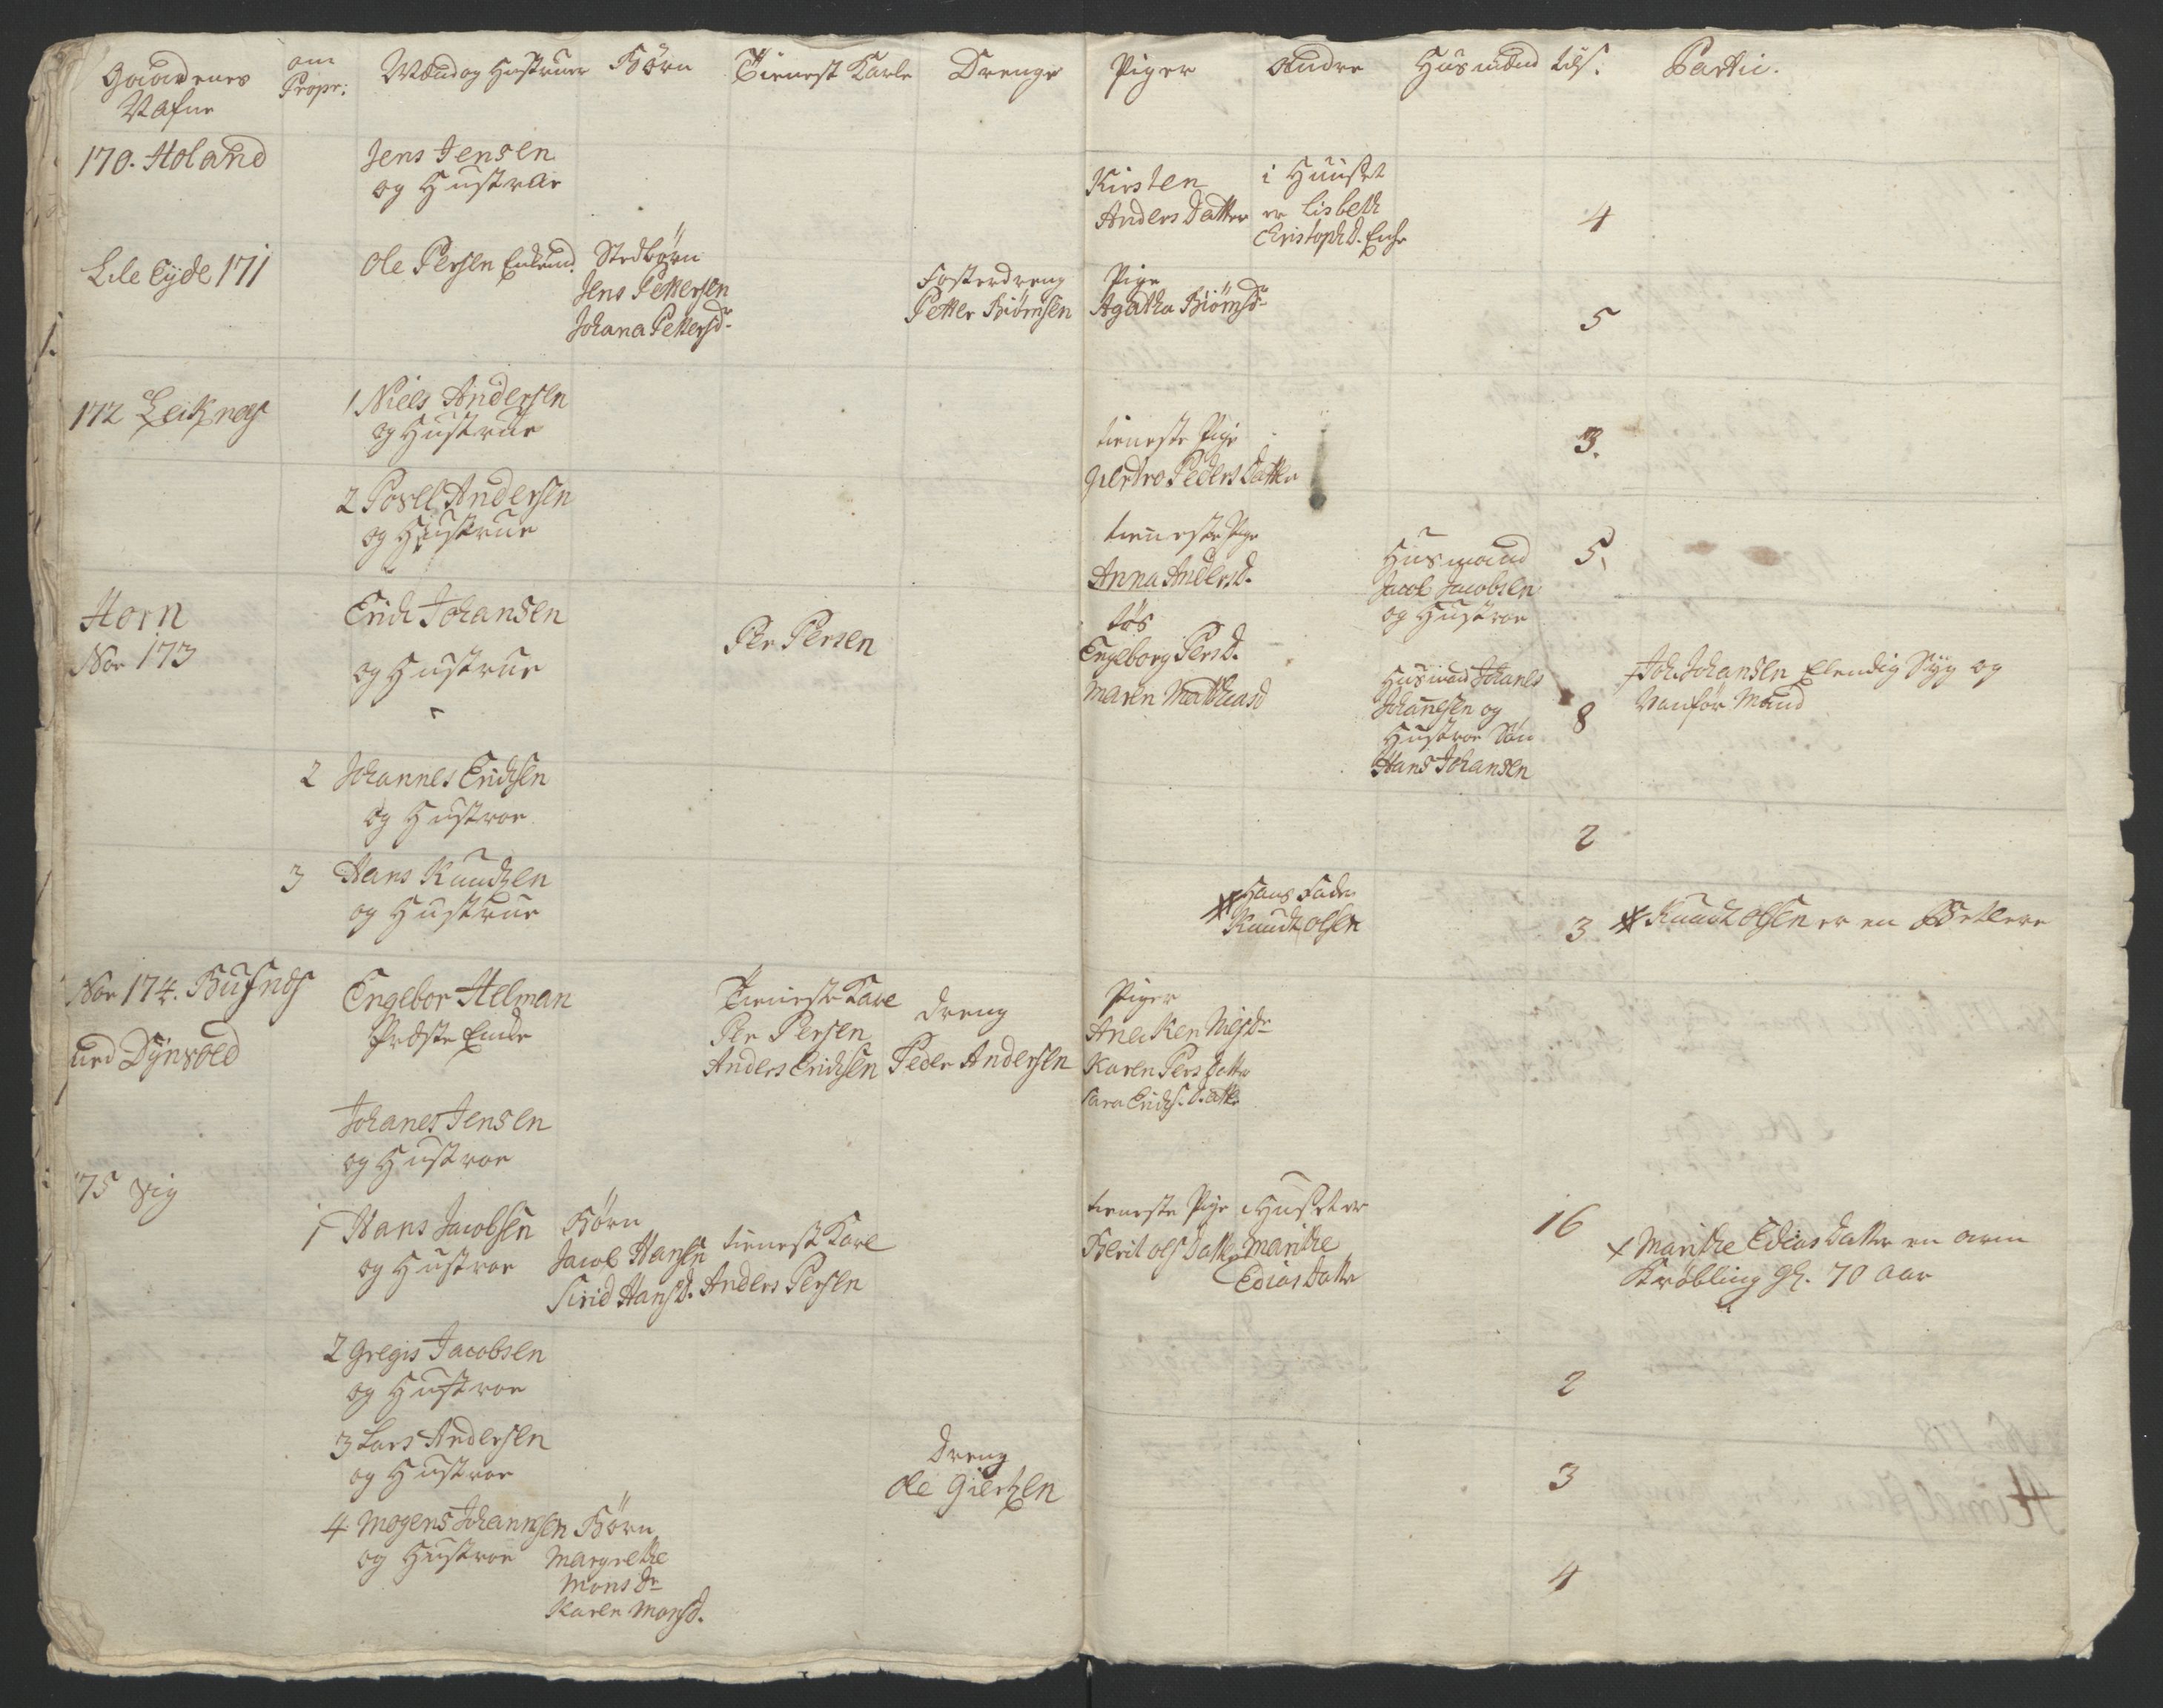 Gaardenes Nafne
om Propr:
Mænd og Hustruer
Børn
Tienest Karle
Drenge
Piger
Andre
Husmænd
Partic.
170. Holand
Jens Jensen
og Hustrue
Kirsten
Anders Datter
i Huuset
er Lisbeth
Christoph D. Enke
4
Lile Eyde 171
Ole Persen Enkemd.
Stedbørn
Jens Pettersen
Johana Pettersdr
Fosterdreng
Petter Biørnsen
Pige
Agatha Biørnsdr
5
172 Leiknes
1 Niels Andersen
og Hustrue
tieneste Pige
Giertro Peders Datter
3.
2 Povel Andersen
og Hustrue
tieneste Pige
Anna Andersd.
Husmand
Jacob Jacobsen
og Hustroe
5.
Horn
Nor 173
Erich Johansen
og Hustrue
Per Persen
tøs
Engeborg Persd.
Maren Mathiasd
Husmand Johanes
Johannesen og
Hustroe Søn
Hans Johansen
8
Joh. Johansen Elendig Syg og
Vanfør Mand
2 Johannes Erichsen
og Hustroe
2
3 Hans Knudtzen
og Hustrue
Hans Fader
Knudt Olsen
3
Knudt Olsen er en Betlere
Nor 174. Husnes
ved Dynsoed
Engebor Helman
Præste Enke
Tieneste Karl
Per Persen
Anders Erichsen
Dreng
Peder Andersen
Piger
Aneken Nilsdr
Karen Pers Datter
Sara Erichs. Datter
Johanes Jensen
og Hustroe
75 Vig
1 Hans Jacobsen
og Hustroe
Børn
Jacob Hansen
Sirid Hansd.
tienest Karl
Anders Persen
tieneste Pige
Berit Ols Datter
i Huset er
Marithe
Edias Datter
16
x Marithe Edias Datter en arm
Krøbling gl. 70 aar
2 Gregis Jacobsen
og Hustroe
2
3 Lars Andersen
og Hustroe
Dreng
Ole Giertzen
3
4. Mogens Johannesen
og Hustroe
Børn
Margrethe
Mons dr
Karen Monsd.
4